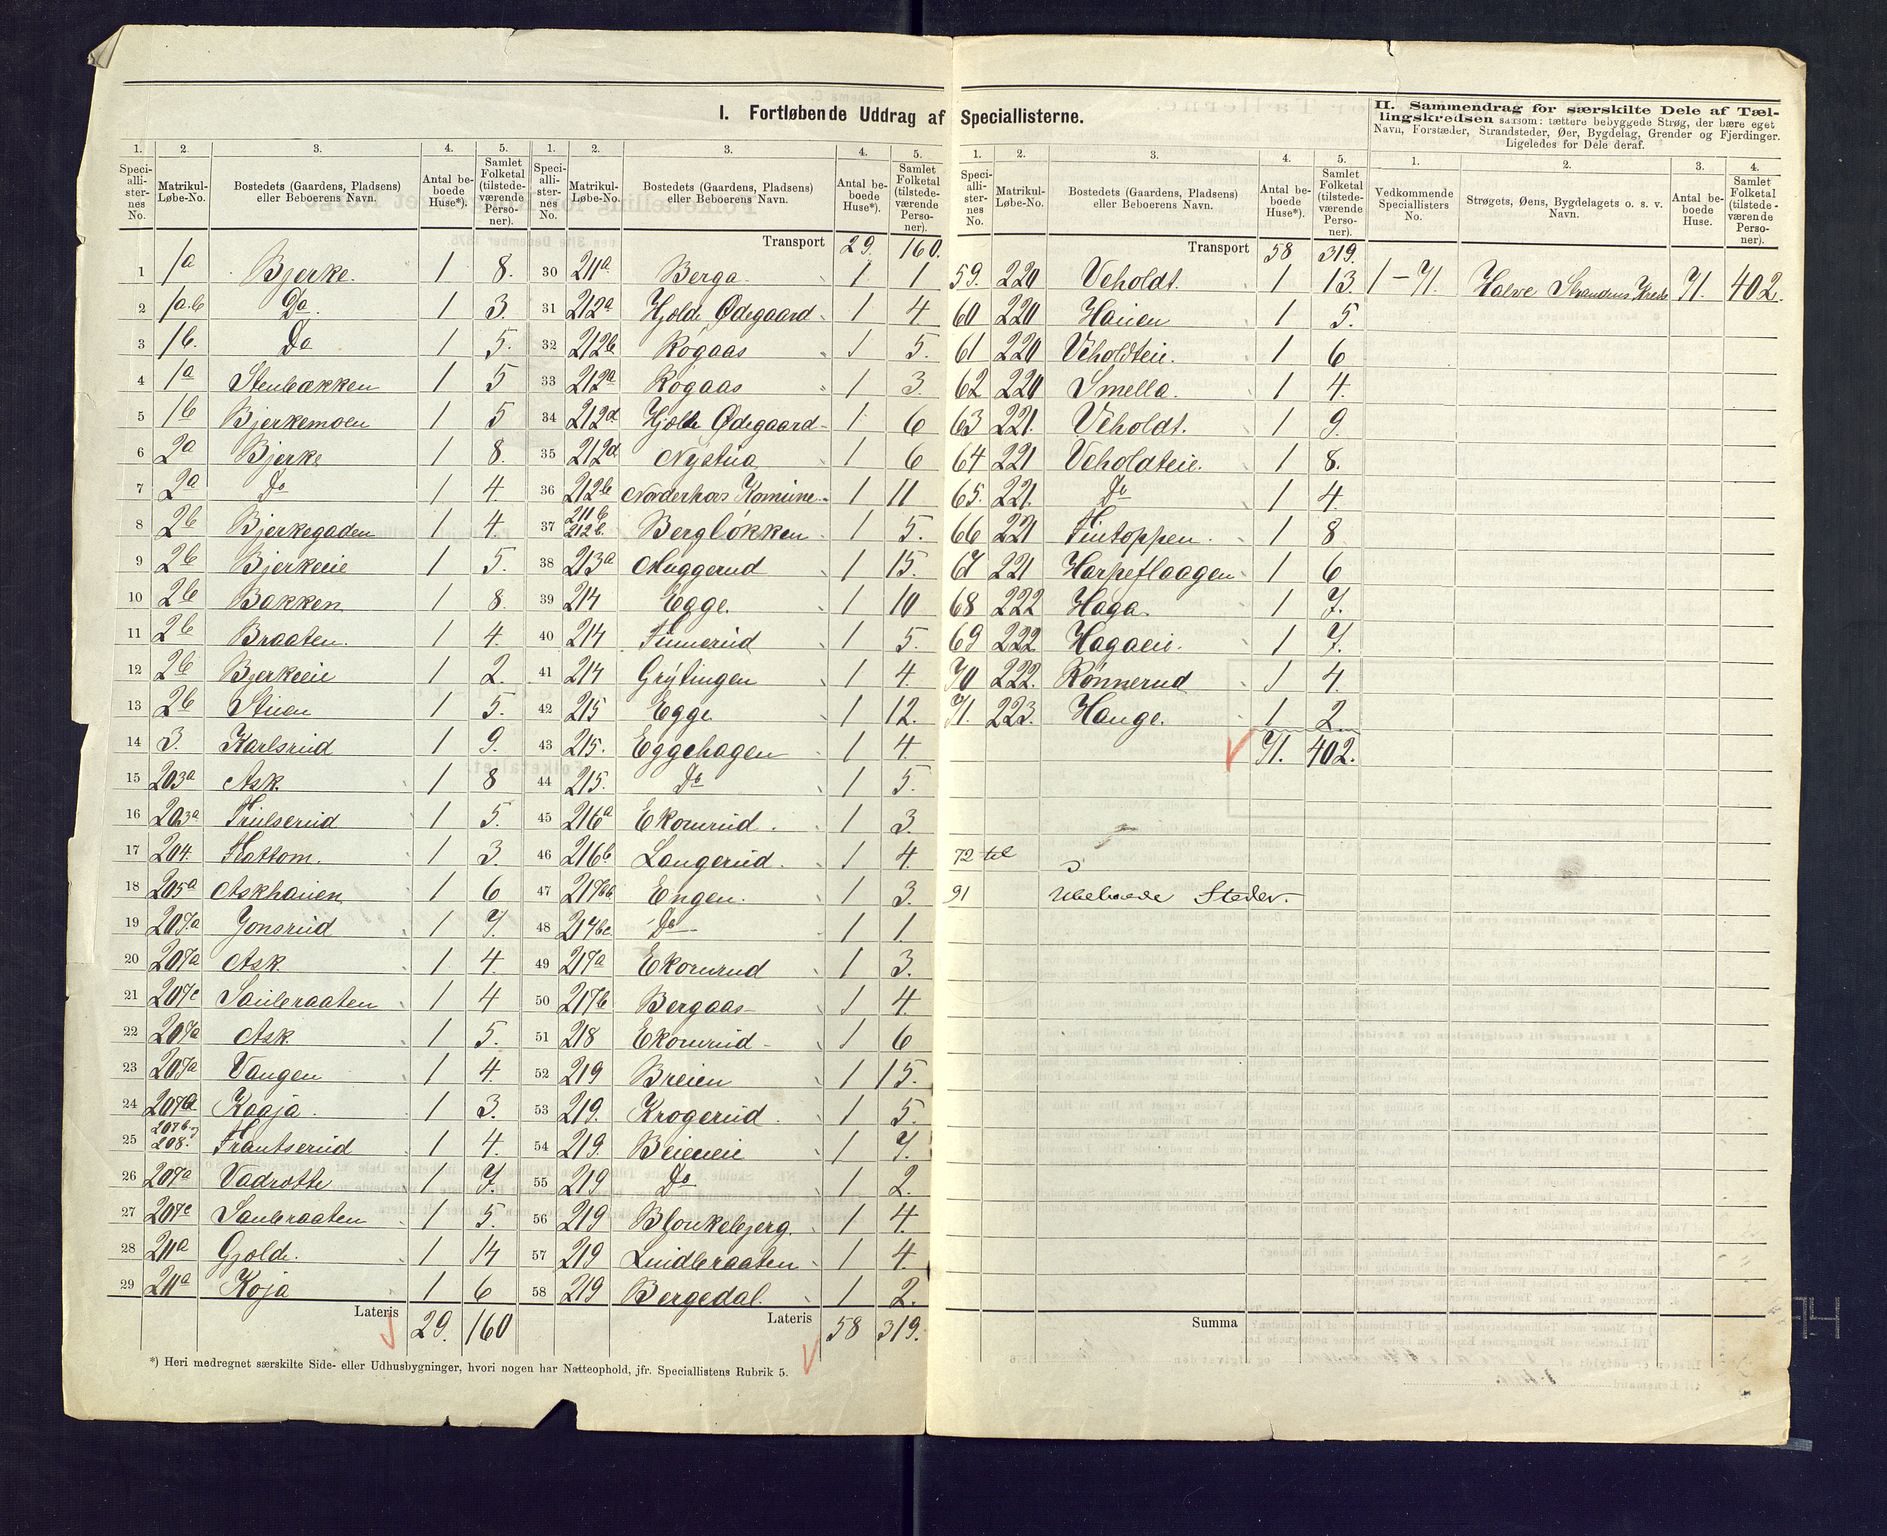 I. Fortløbende Uddrag af Speciallisterne.
II. Sammendrag for særskilte Dele af Tæl-
lingskredsen saasom: tættere bebyggede Strøg, der bære eget
Navn, Forstæder, Strandsteder, Øer, Bygdelag, Grender og Fjerdinger.
Ligeledes for Dele deraf.
1. 2. 3. 4. 5. 1. 2. 3. 4. 5.
Speci-alli-ster-nes No. Matrikul-Løbe-No. Bostedets (Gaardens, Pladsens) eller Beboerens Navn. Antal be-boede Huse*). Samlet Folketal (tilstede-værende Perso-ner).
Speci-alli-ster-nes No. Matrikul-Løbe-No. Bostedets (Gaardens, Pladsens) eller Beboerens Navn. Antal be-boede Huse*). Samlet Folketal (tilstede-værende Perso-ner).
1 1a Bjerke. 1 8.
2 1a.b Do. 1 3.
3 1b. Do 1 5.
4 1a Stenbakken 1 5
5 1b Bjerkemoen 1 5
6 2a Bjerke 1 8.
7 2a Do 1 4.
8 2b Bjerkegaden 1 4.
9 2b Bjerkeeie 1 5.
10 2b Bakken 1 8.
11 2b Braaten. 1 4.
12 2b Bjerkeeie 1 2.
13 2b Stuen 1 5.
14 3. Karlsrud 1 9.
15 203a Ask. 1 8
16 203a 1 5.
17 204. Flattom. 1 3.
18 205a Askhauen 1 6
19 207.a Jonsrud 1 7.
20 207a Ask 1 4.
21 207c 1 4
22 207a Ask 1 5.
23 207a Vangen 1 4.
24 207a Kaaja. 1 3.
25 207b og 208. Frantserud 1 4.
26 207a Vadrette 1 7.
27 207c 1 5.
28 211a Gjeld. 1 14
29 211a Koja 1 6
Lateris 29. 160
Transport 29. 160.
30 211a Berga 1 1
31 212a Hjelde Ødegaard 1 4.
32 212b Rogaas 1 5.
33 212a Rogaas 1 3.
34 212d Hjelle Ødegaard 1 6
35 212d Nystua 1 6
36 212b Norderhovs Komune 1 11
37 211b 212b. Bergløkken 1 5.
38 213a Muggerud 1 15.
39 214 Egge. 1 10
40 214 Finnerud 1 5.
41 214 Grytingen 1 4.
42 215 Egge 1 12.
43 215. Eggehagen 1 4.
44 215. Do 1 5.
45 216a Ekornrud. 1 3.
46 216b Langerud. 1 4.
47 217bb Engen. 1 3.
48 217bc Do 1 1.
49 217a Ekornrud 1 3.
50 217b Bergaas 1 4.
51 218 Ekornrud 1 6
52 219 Breien 1 15.
53 219. Krogerud. 1 5.
54 219. 1 7.
55 219 Do 1 2.
56 219 Blonkebjerg. 1 4.
57 219 Lindbraaten 1 4.
58 219 Bergedal. 1 2.
Lateris 58 319.
*) Heri medregnet særskilte Side- eller Udhusbygninger, hvori nogen har Natteophold, jfr. Speciallistens Rubrik 5.
1. 2. 3. 4. 5. 1. 2. 3. 4.
Speci-alli-ster-nes No. Matrikul-Løbe-No. Bostedets (Gaardens, Pladsens) eller Beboerens Navn. Antal be-boede Huse*). Samlet Folketal (tilstede-værende Perso-ner).
Vedkommende Speciallisters No. Strøgets, Øens, Bygdelagets o. s. v. Navn. Antal be-boede Huse. Samlet Folketal (tilstede-værende Perso-ner).
Transport 58 319.
59. 220 Veholdt. 1 13. 1-71. Halve Strandens Kreds 71. 402.
60 220 Hauen 1 5.
61 220 Veholdteie. 1 6
62 220 Smella. 1 4.
63 221. Veholdt. 1 9.
64 221 Veholdteie. 1 8.
65. 221. Do 1 4.
66 221 Tintoppen. 1 8
67 221 Harpeflaagen 1 6
68 222 Haga. 1 7.
69 222 Hagaeie. 1 7.
70 222. Rønnerud 1 4.
71. 223. Hauge. 1 2.
71. 402.
72 til
91 Ubeboede Steder.
Summa